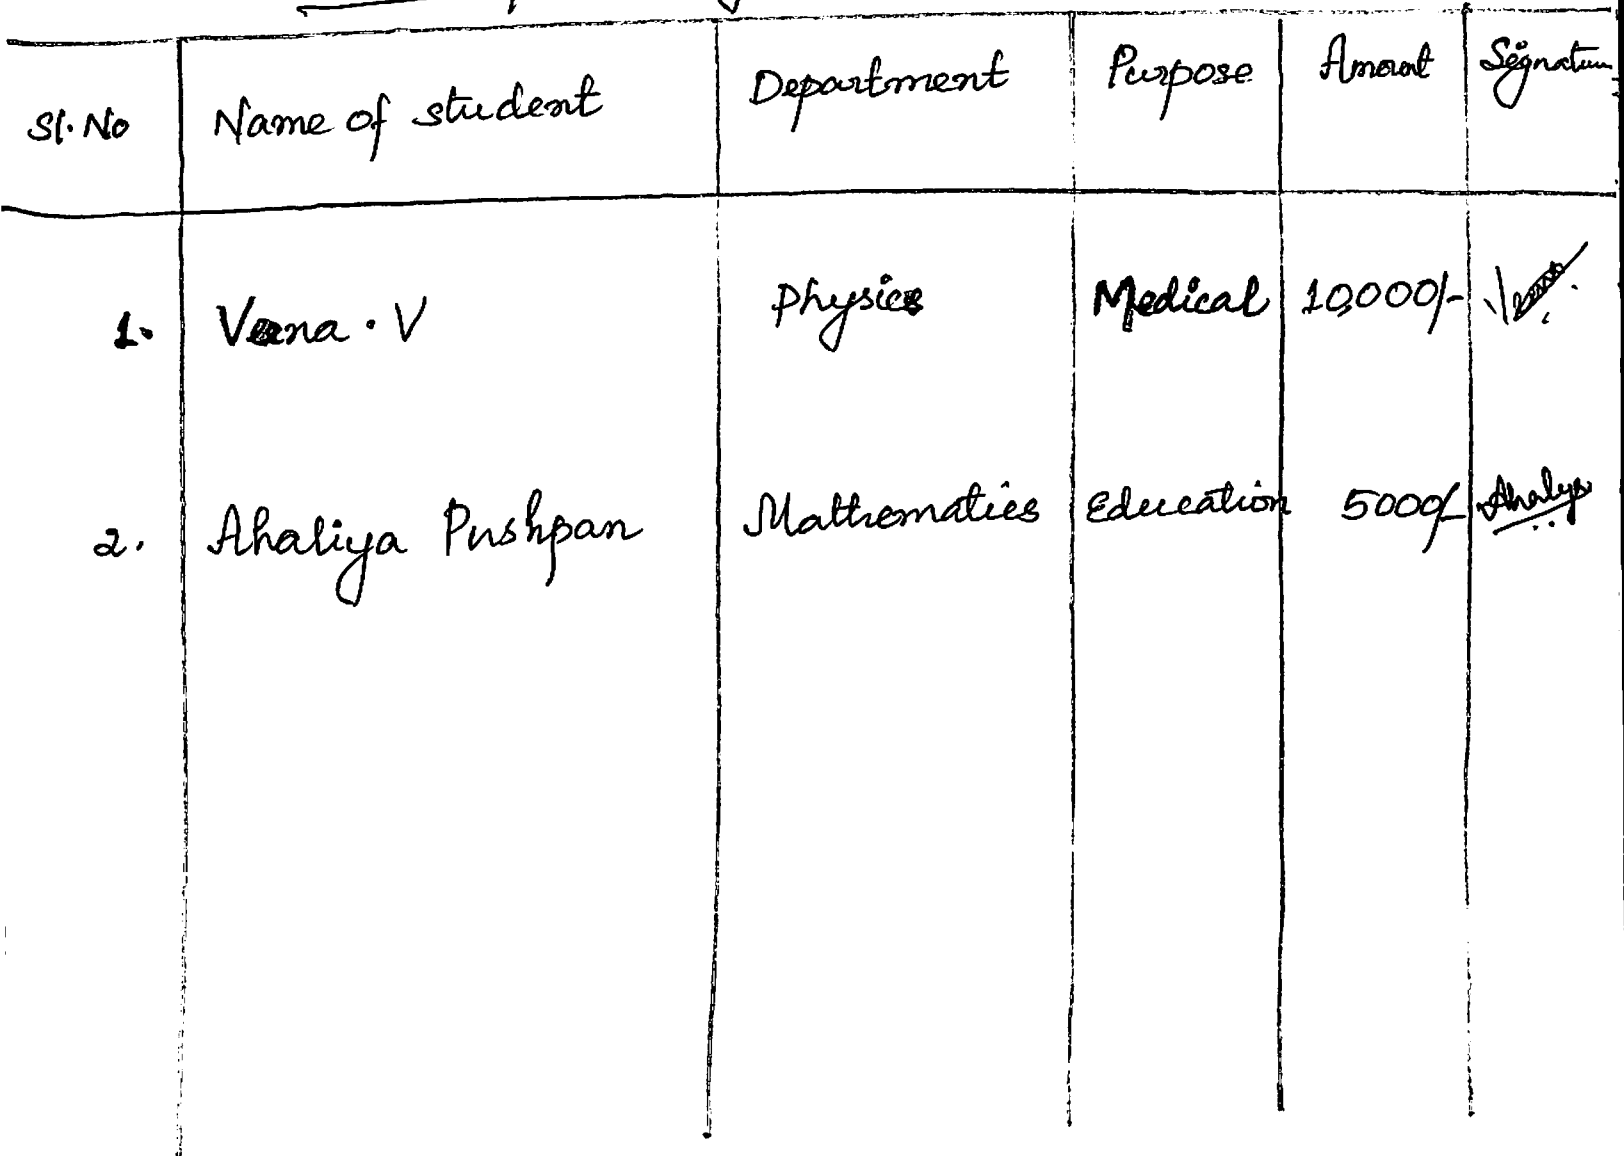 Sl. No Name of student Department Purpose Amount Signature
1. Veena . V Physics Medical 10,000/-
2. Ahaliya Pushpan Mathematics Education 5000/- Ahaliya